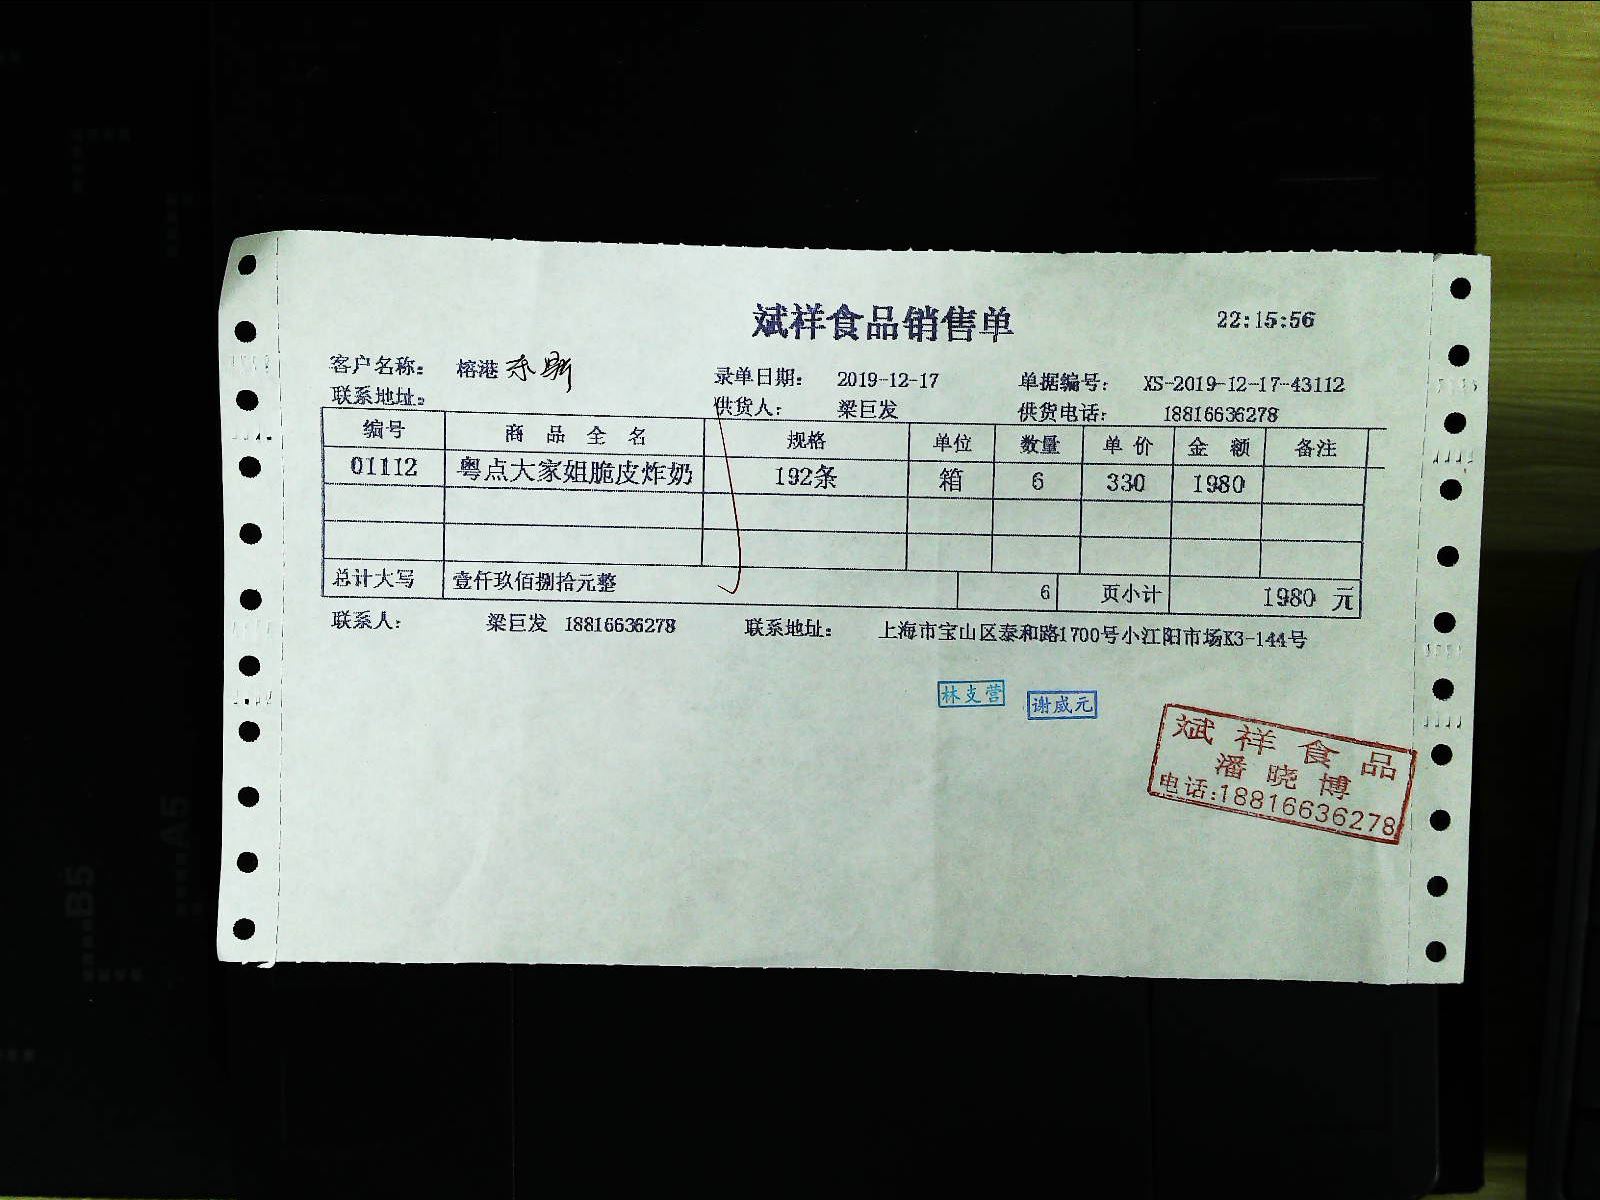 斌祥食品销售单 22:15:56
客户名称： 榕港 录单日期： 2019-12-17 单据编号： XS-2019-12-17-43112
联系地址： 供货人： 梁巨发 供货电话： 18816636278
编号 商品全名 规格 单位 数量 单价 金额 备注
01112 粤点大家姐脆皮炸奶 192条 箱 6 330 1980
总计大写 壹仟玖佰捌拾元整 6 页小计 1980 元
联系人： 梁巨发 18816636278 联系地址： 上海市宝山区泰和路1700号小江阳市场K3-144号
林支营 谢威元
斌祥食品
潘晓博
电话:18816636278
A5
B5